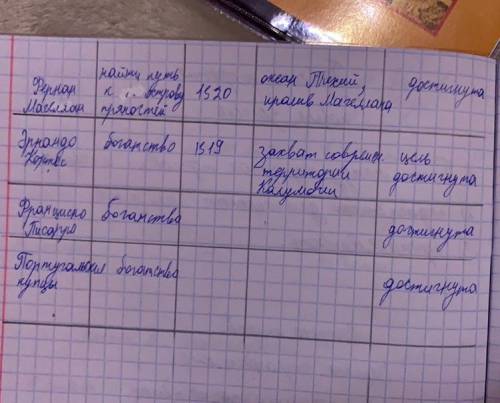 Фернан Магеллан | найти путь к острову пряностей | 1520 | океан Тихий, пролив Магеллана | достигнута
Эрнандо Кортес | богатство | 1519 | захват современ. территории Колумбии | цель достигнута
Франциско Писарро | богатства | достигнута
Португальские купцы | богатство | достигнута